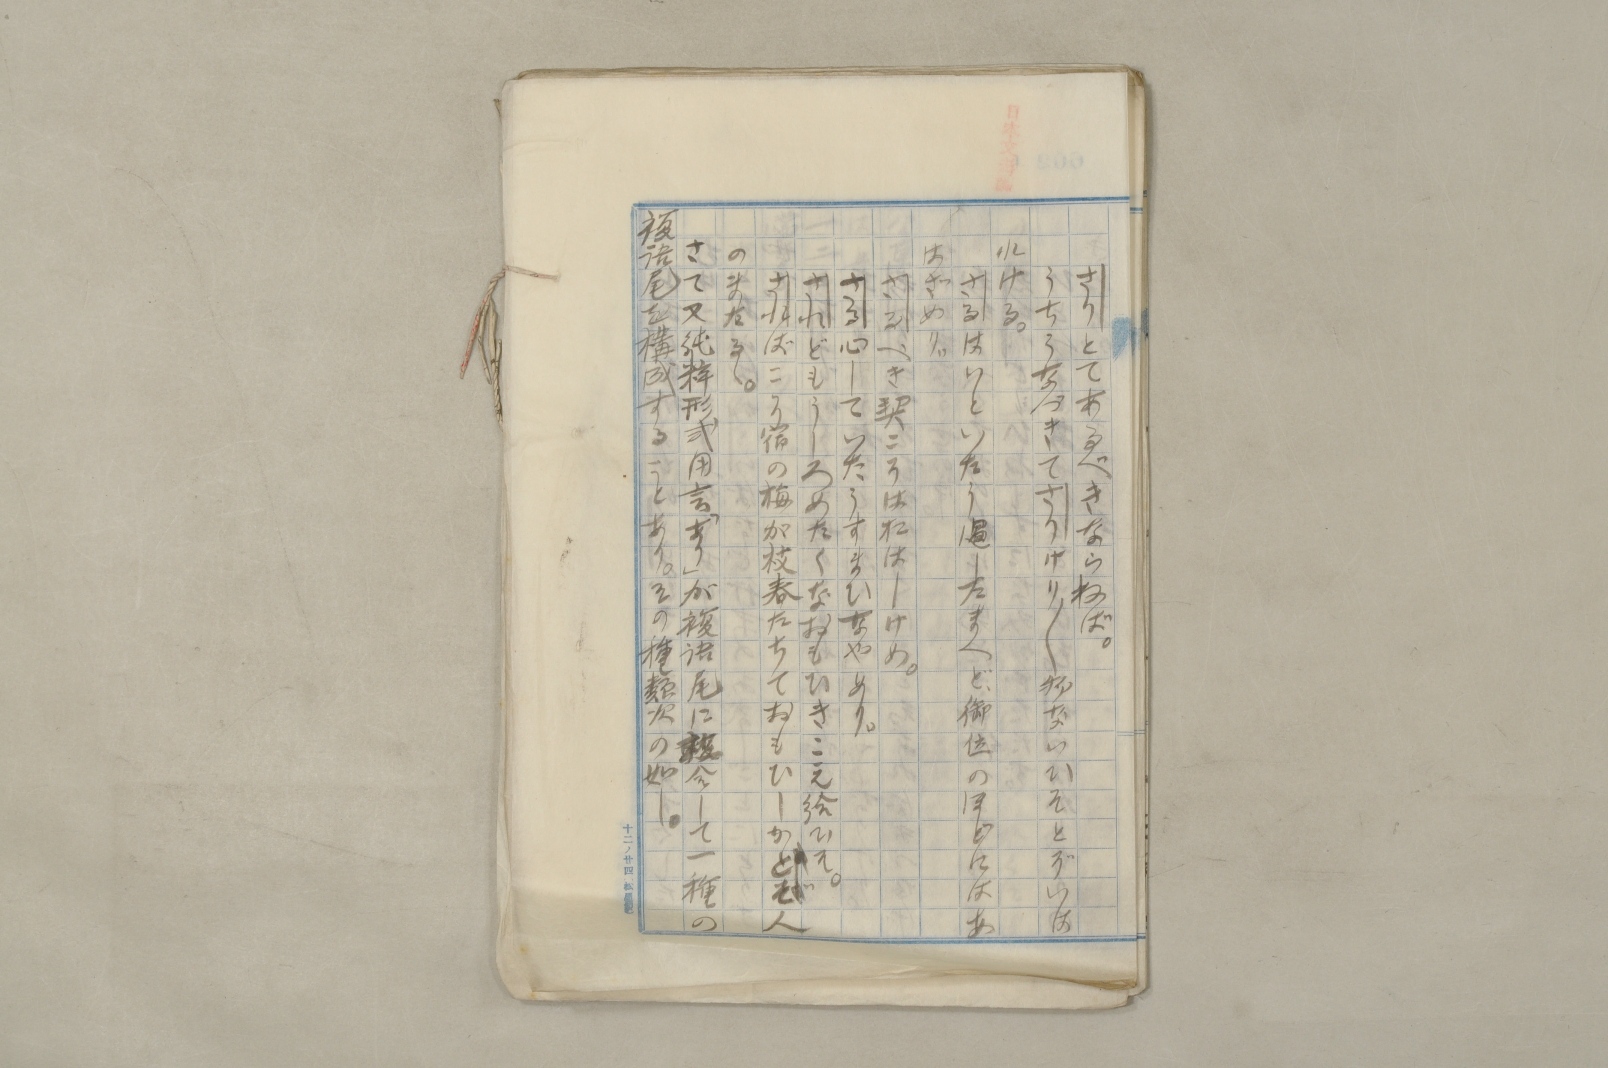 さりとてあるべきならねば。
うちうなづきてさりけり〳〵なといひそとがいは
れける。
さるはいといたう過したまへど、御位のほどにはあ
はざめり。
さるべき契こそはおはしけめ。
さる心していたうすまひなやめり。
されどもうしろめたくなおもひきこえ給ひそ。
さればこそ宿の梅が枝春たちておもひしかど人
のまたるゝ。
さて又純粋形式用言「あり」が複語尾に接合して一種の
複語尾を構成することあり。その種類次の如し。
十二ノ廿四